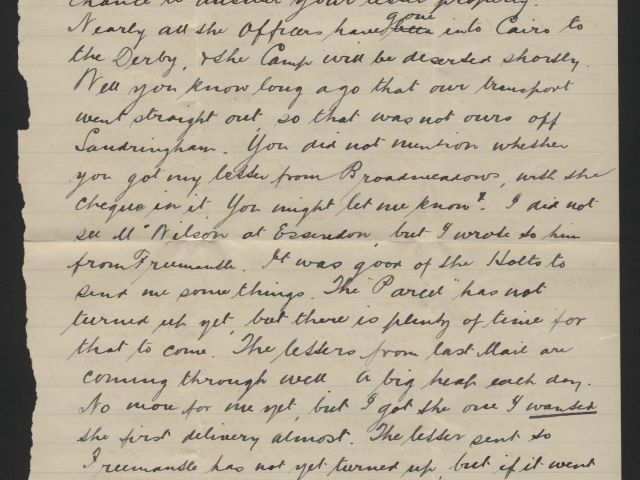 chance to answer your letter properly.
Nearly all the Officers have gone into Cairo to
the Derby, & the Camp will be deserted shortly.
Well you know long ago that our transport
went straight out so that was not ours off
Sandringham. You did not mention whether
you got my letter from Broadmeadows, with the
cheque in it. You might let me know? I did not
see Mr Wilson at Essendon, but I wrote to him
from Freemantle. It was good of the Holts to
send me some things. The "Parcel" has not
turned up yet, but there is plenty of time for
that to come. The letters from last Mail are
coming through well. A big heap each day.
No more for me yet, but I got the one I wanted
the first delivery almost. The letter sent to
Freemantle has not yet turned up, but if it went